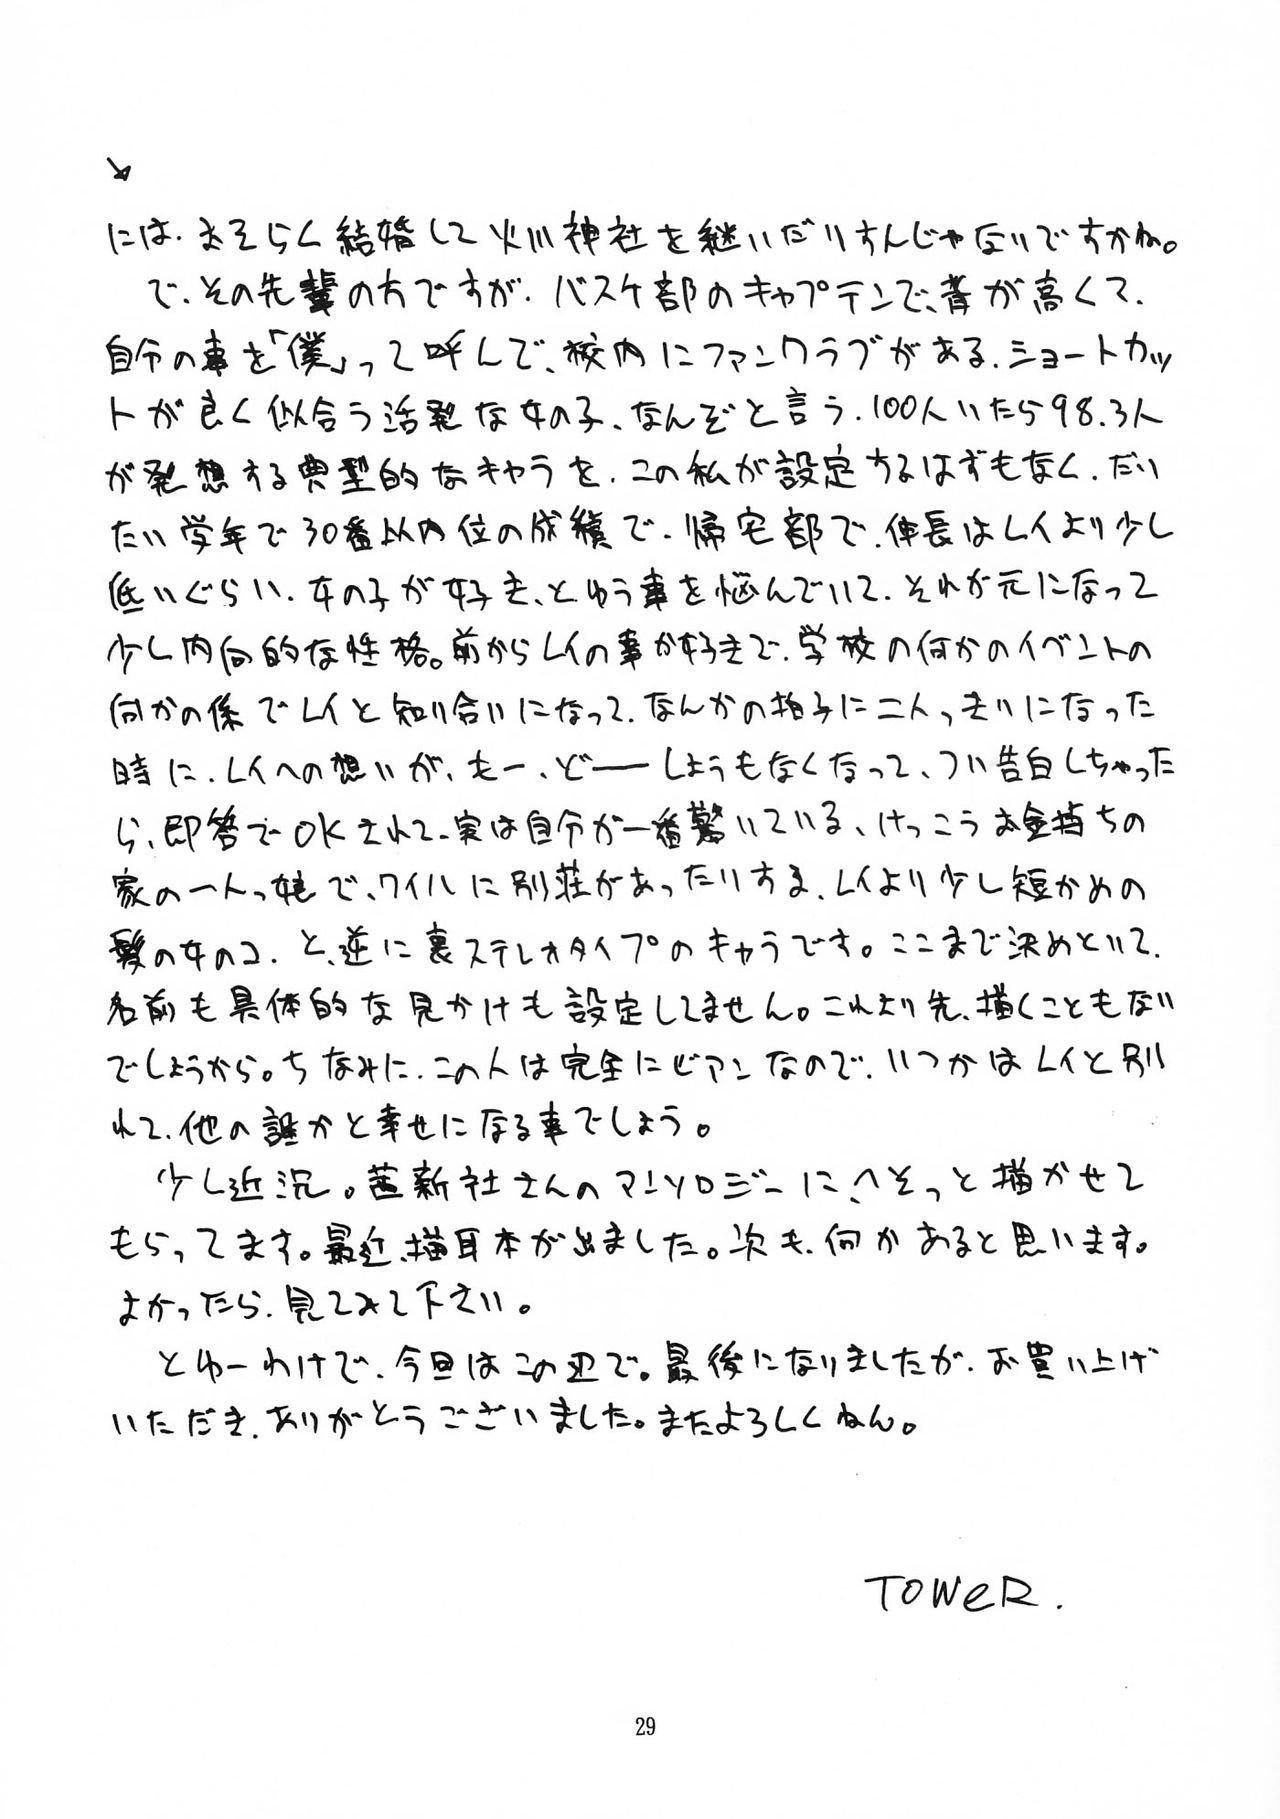 には、おそらく結婚して火川神社を継いだりすんじゃないですかね。
で、その先輩の方ですが、バスケ部のキャプテンで、背が高くて、
自分の事を「僕」って呼んで、校内にファンクラブがある、ショートカッ
トが良く似合う活発な女の子、なんぞと言う、100人いたら98.3人
が発想する典型的なキャラを、この私が設定するはずもなく、だい
たい学年で30番以内位の成績で、帰宅部で、伸長はレイより少し
低いぐらい、女の子が好き、とゆう事を悩んでいて、それが元になって
少し内向的な性格。前からレイの事が好きで、学校の何かのイベントの
何かの係でレイと知り合いになって、なんかの拍子に二人っきりになった
時に、レイへの想いが、もー、どーーしょうもなくなって、つい告白しちゃった
ら、即答でOKされて、実は自分が一番驚いている、けっこうお金持ちの
家の一人っ娘で、ワイハに別荘があったりする、レイより少し短かめの
髪の女のコ、と、逆に裏ステレオタイプのキャラです。ここまで決めといて、
名前も具体的な見かけも設定してません。これより先、描くこともない
でしょうから。ちなみに、この人は完全にビアンなので、いつかはレイと別
れて、他の誰かと幸せになる事でしょう。
少し近況。茜新社さんのアンソロジーに、へそっと描かせて
もらってます。最近、猫耳本が出ました。次も、何かあると思います。
よかったら、見てみて下さい。
とゆーわけで、今回はこの辺で。最後になりましたが、お買い上げ
いただき、ありがとうございました。またよろしくねん。
TOWeR.
29